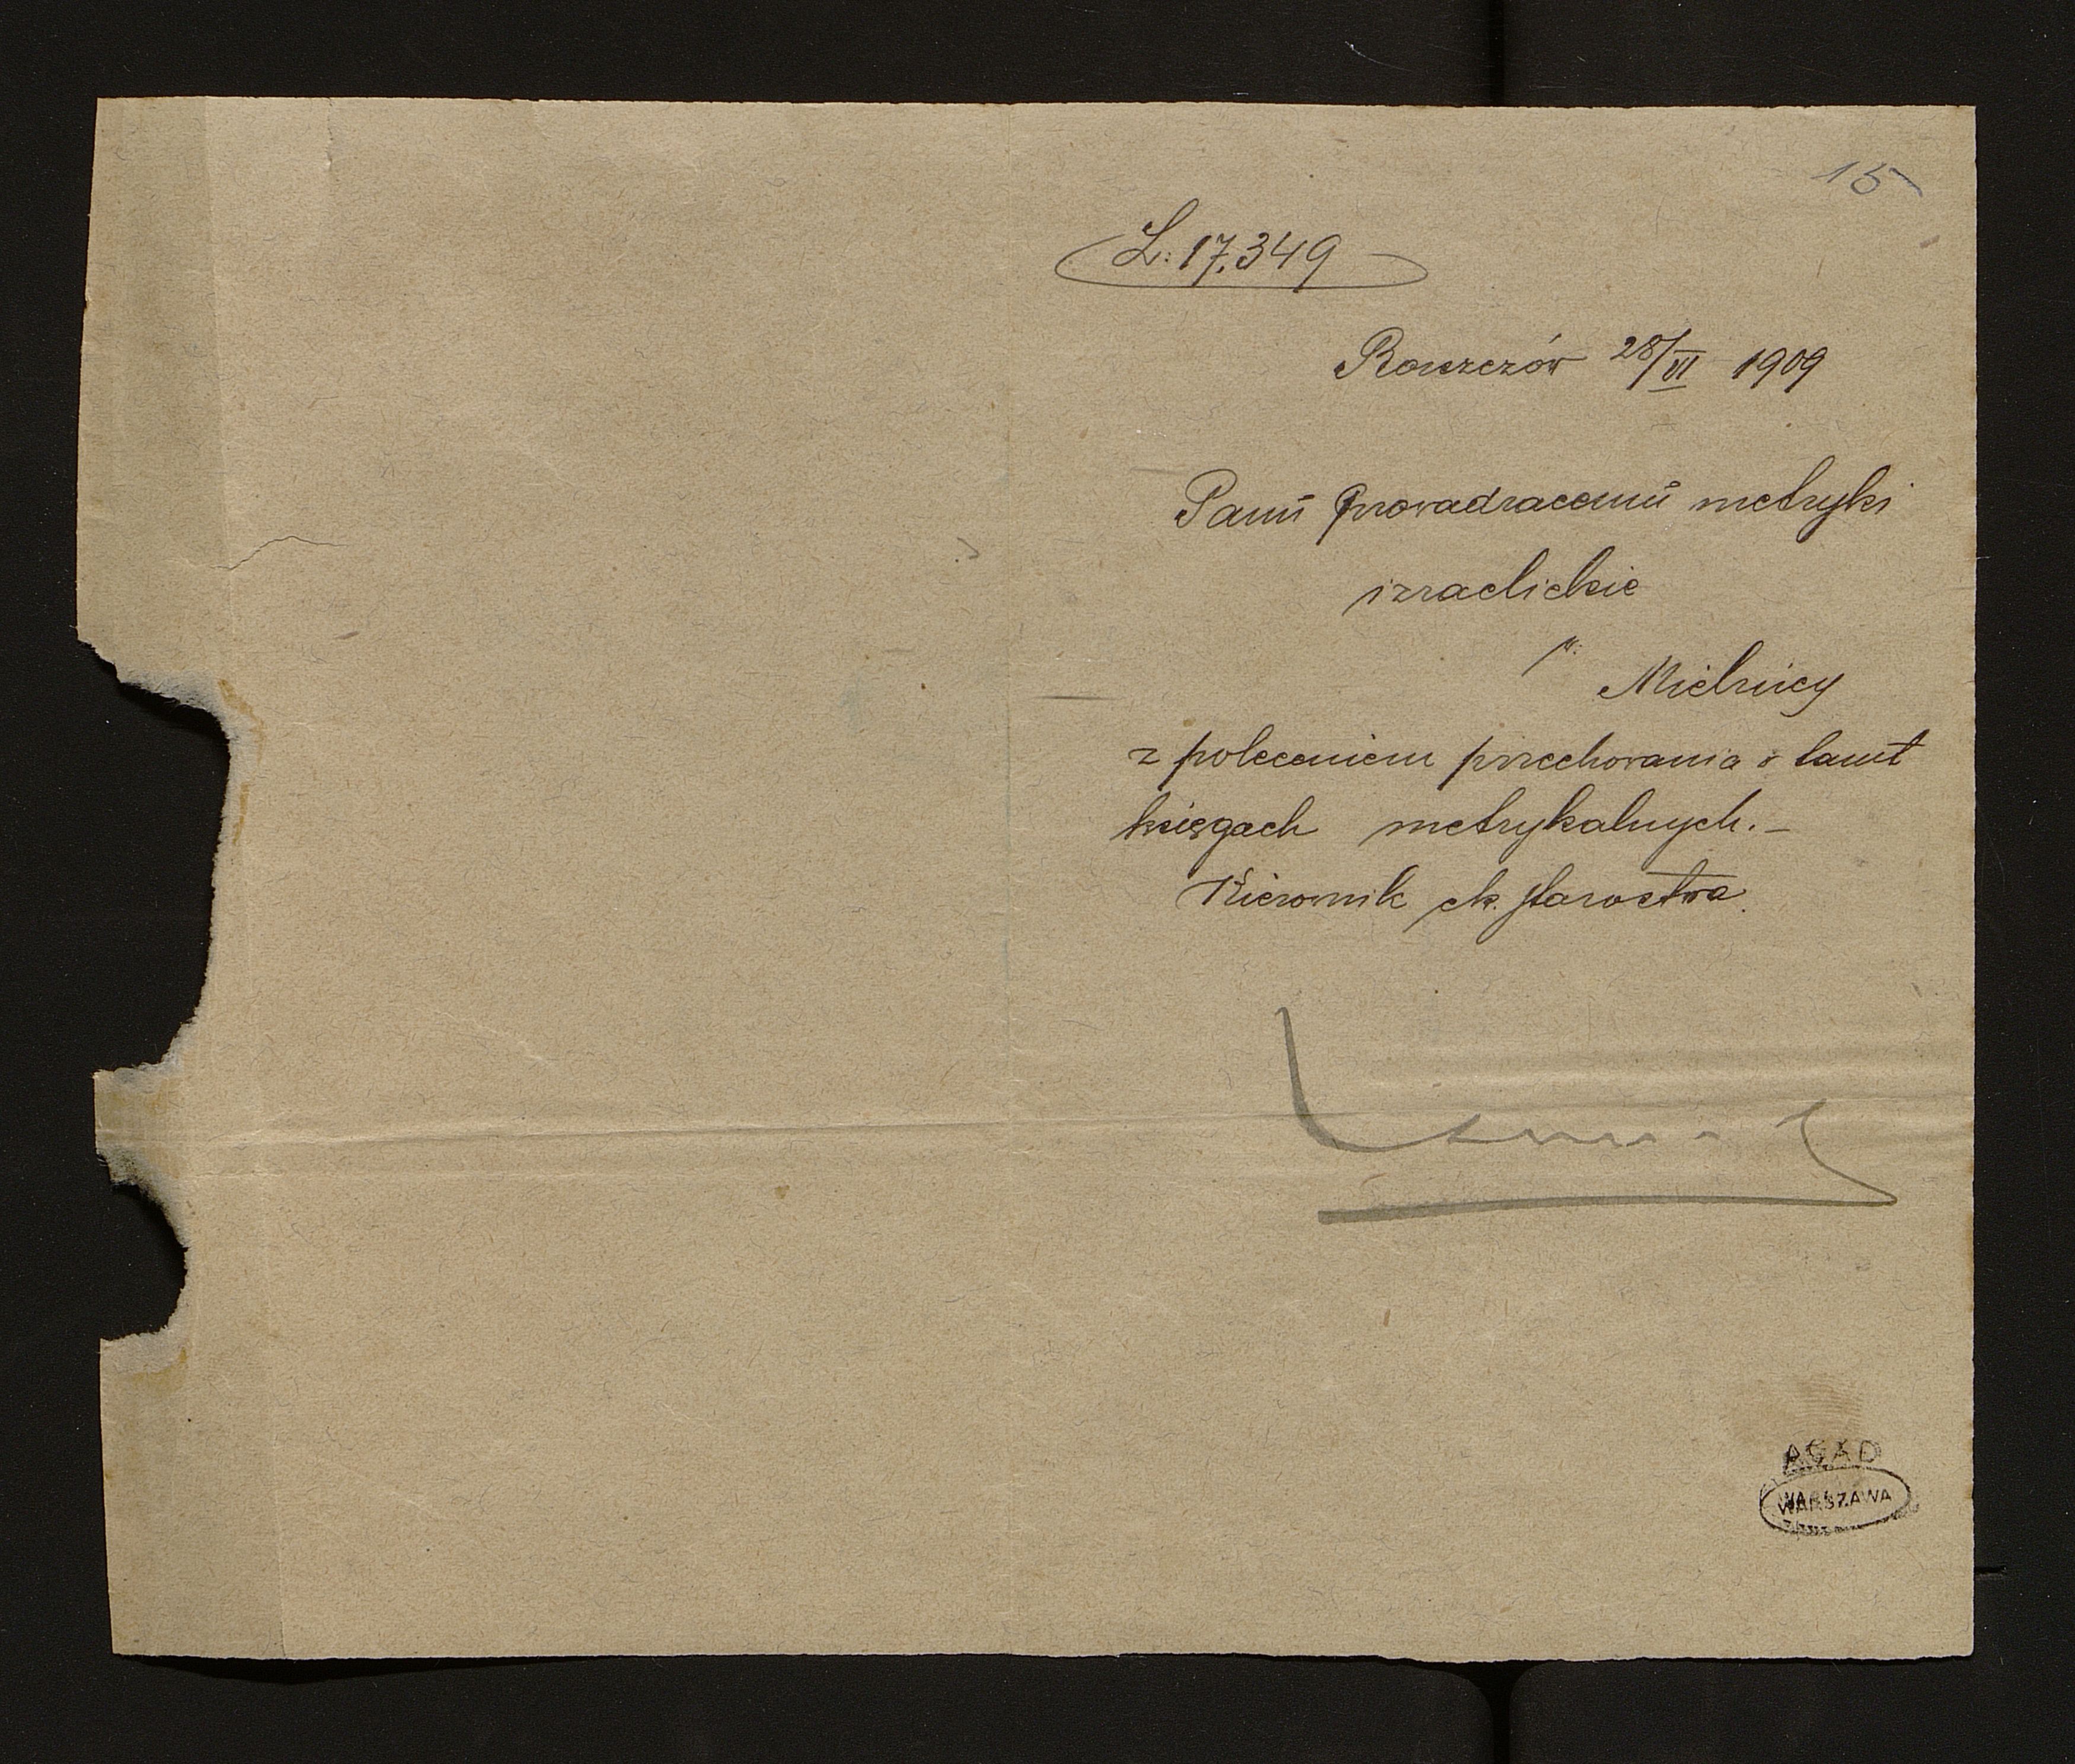 15
L: 17.349
Borszczów 28/VI 1909
Panu Prowadzacemu metryki
izraelickie
w
Mielnicy
z poleceniem przechowania w tamt
księgach metrykalnych.-
Kierownik ck. starostwa.
AGAD
WARSZAWA